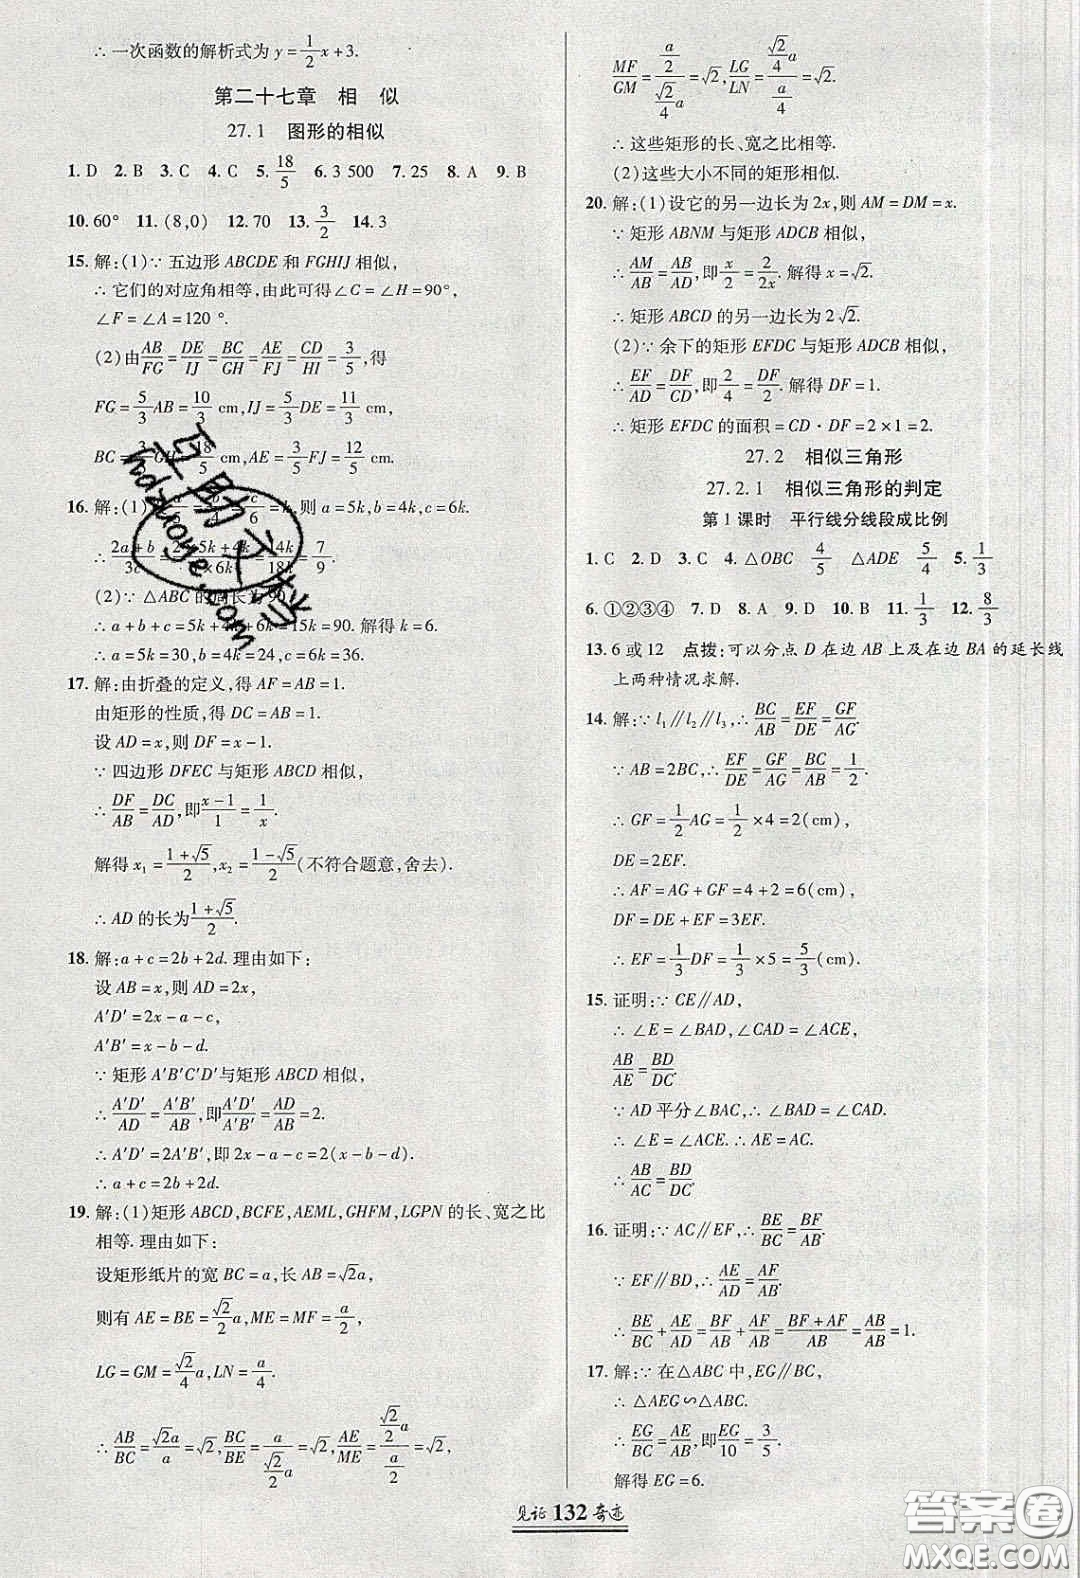 ∴ 一次函数的解析式为 y=1/2x+3.
第二十七章 相 似
27.1 图形的相似
1. D 2. B 3. C 4. C 5. 18/5 6. 3 500 7. 25 8. A 9. B
10. 60° 11. (8,0) 12. 70 13. 3/2 14. 3
15. 解:(1)∵ 五边形 ABCDE 和 FGHIJ 相似,
∴ 它们的对应角相等,由此可得∠C=∠H=90°,
∠F=∠A=120 °.
(2)由AB/FG=DE/IJ=BC/GH=AE/FJ=CD/HI=3/5,得
FG=5/3AB=10/3 cm,IJ=5/3DE=11/3 cm,
BC=3/5GH=18/5 cm,AE=3/5FJ=12/5 cm.
16. 解:(1)a/5=b/4=c/6=k,则 a=5k,b=4k,c=6k.
∴ (2a+b)/3c=(2×5k+4k)/(3×6k)=14k/18k=7/9.
(2)∵ △ABC 的周长为 90,
∴ a+b+c=5k+4k+6k=15k=90. 解得 k=6.
∴ a=5k=30,b=4k=24,c=6k=36.
17. 解:由折叠的定义,得 AF=AB=1.
由矩形的性质,得 DC=AB=1.
设 AD=x,则 DF=x-1.
∵ 四边形 DFEC 与矩形 ABCD 相似,
∴ DF/AB=DC/AD,即(x-1)/1=1/x.
解得 x₁=(1+√5)/2,x₂=(1-√5)/2(不符合题意,舍去).
∴ AD 的长为(1+√5)/2.
18. 解:a+c=2b+2d. 理由如下:
设 AB=x,则 AD=2x,
A′D′=2x-a-c,
A′B′=x-b-d.
∵ 矩形 A′B′C′D′与矩形 ABCD 相似,
∴ A′D′/AD=A′B′/AB,即A′D′/A′B′=AD/AB=2.
∴ A′D′=2A′B′,即 2x-a-c=2(x-b-d).
∴ a+c=2b+2d.
19. 解:(1)矩形 ABCD,BCFE,AEML,GHFM,LGPN 的长、宽之比
相等. 理由如下:
设矩形纸片的宽 BC=a,长 AB=√2a,
则有 AE=BE=√2/2a,ME=MF=a/2,
LG=GM=√2/4a,LN=a/4.
∴ AB/BC=√2a/a=√2,BC/BE=a/(√2/2a)=√2,AE/ME=(√2/2a)/(a/2)=√2,
MF/GM=(a/2)/(√2/4a)=√2,LG/LN=(√2/4a)/(a/4)=√2.
∴ 这些矩形的长、宽之比相等.
(2)这些大小不同的矩形相似.
20. 解:(1)设它的另一边长为 2x,则 AM=DM=x.
∵ 矩形 ABNM 与矩形 ADCB 相似,
∴ AM/AB=AB/AD,即x/2=2/2x. 解得 x=√2.
∴ 矩形 ABCD 的另一边长为 2√2.
(2)∵ 余下的矩形 EFDC 与矩形 ADCB 相似,
∴ EF/AD=DF/CD,即2/4=DF/2. 解得 DF=1.
∴ 矩形 EFDC 的面积=CD·DF=2×1=2.
27.2 相似三角形
27.2.1 相似三角形的判定
第 1 课时 平行线分线段成比例
1. C 2. D 3. C 4. △OBC 4/5 △ADE 5/4 5. 1/3
6. ①②③④ 7. D 8. A 9. D 10. B 11. 1/3 12. 8/3
13. 6 或 12 点拨:可以分点 D 在边 AB 上及在边 BA 的延长线
上两种情况求解.
14. 解:∵ l₁∥l₂∥l₃,∴ BC/AB=EF/DE=GF/AG.
∵ AB=2BC,∴ EF/DE=GF/AG=BC/AB=1/2.
∴ GF=1/2AG=1/2×4=2(cm),
DE=2EF.
∴ AF=AG+GF=4+2=6(cm),
DF=DE+EF=3EF.
∴ EF=1/3DF=1/3×5=5/3(cm).
15. 证明:∵ CE∥AD,
∴ ∠E=∠BAD,∠CAD=∠ACE,
AB/AE=BD/DC.
∵ AD 平分∠BAC,∴ ∠BAD=∠CAD.
∴ ∠E=∠ACE. ∴ AE=AC.
∴ AB/AC=BD/DC.
16. 证明:∵ AC∥EF,∴ BE/BC=BF/AB.
∵ EF∥BD,∴ AE/AD=AF/AB.
∴ BE/BC+AE/AD=BF/AB+AF/AB=(BF+AF)/AB=AB/AB=1.
17. 解:∵ 在△ABC 中,EG∥BC,
∴ △AEG∽△ABC.
∴ EG/BC=AE/AB,即EG/10=3/5.
解得 EG=6.
见证 132 奇迹
互助文档
hdzuoye.com
答案圈
MXQE.COM